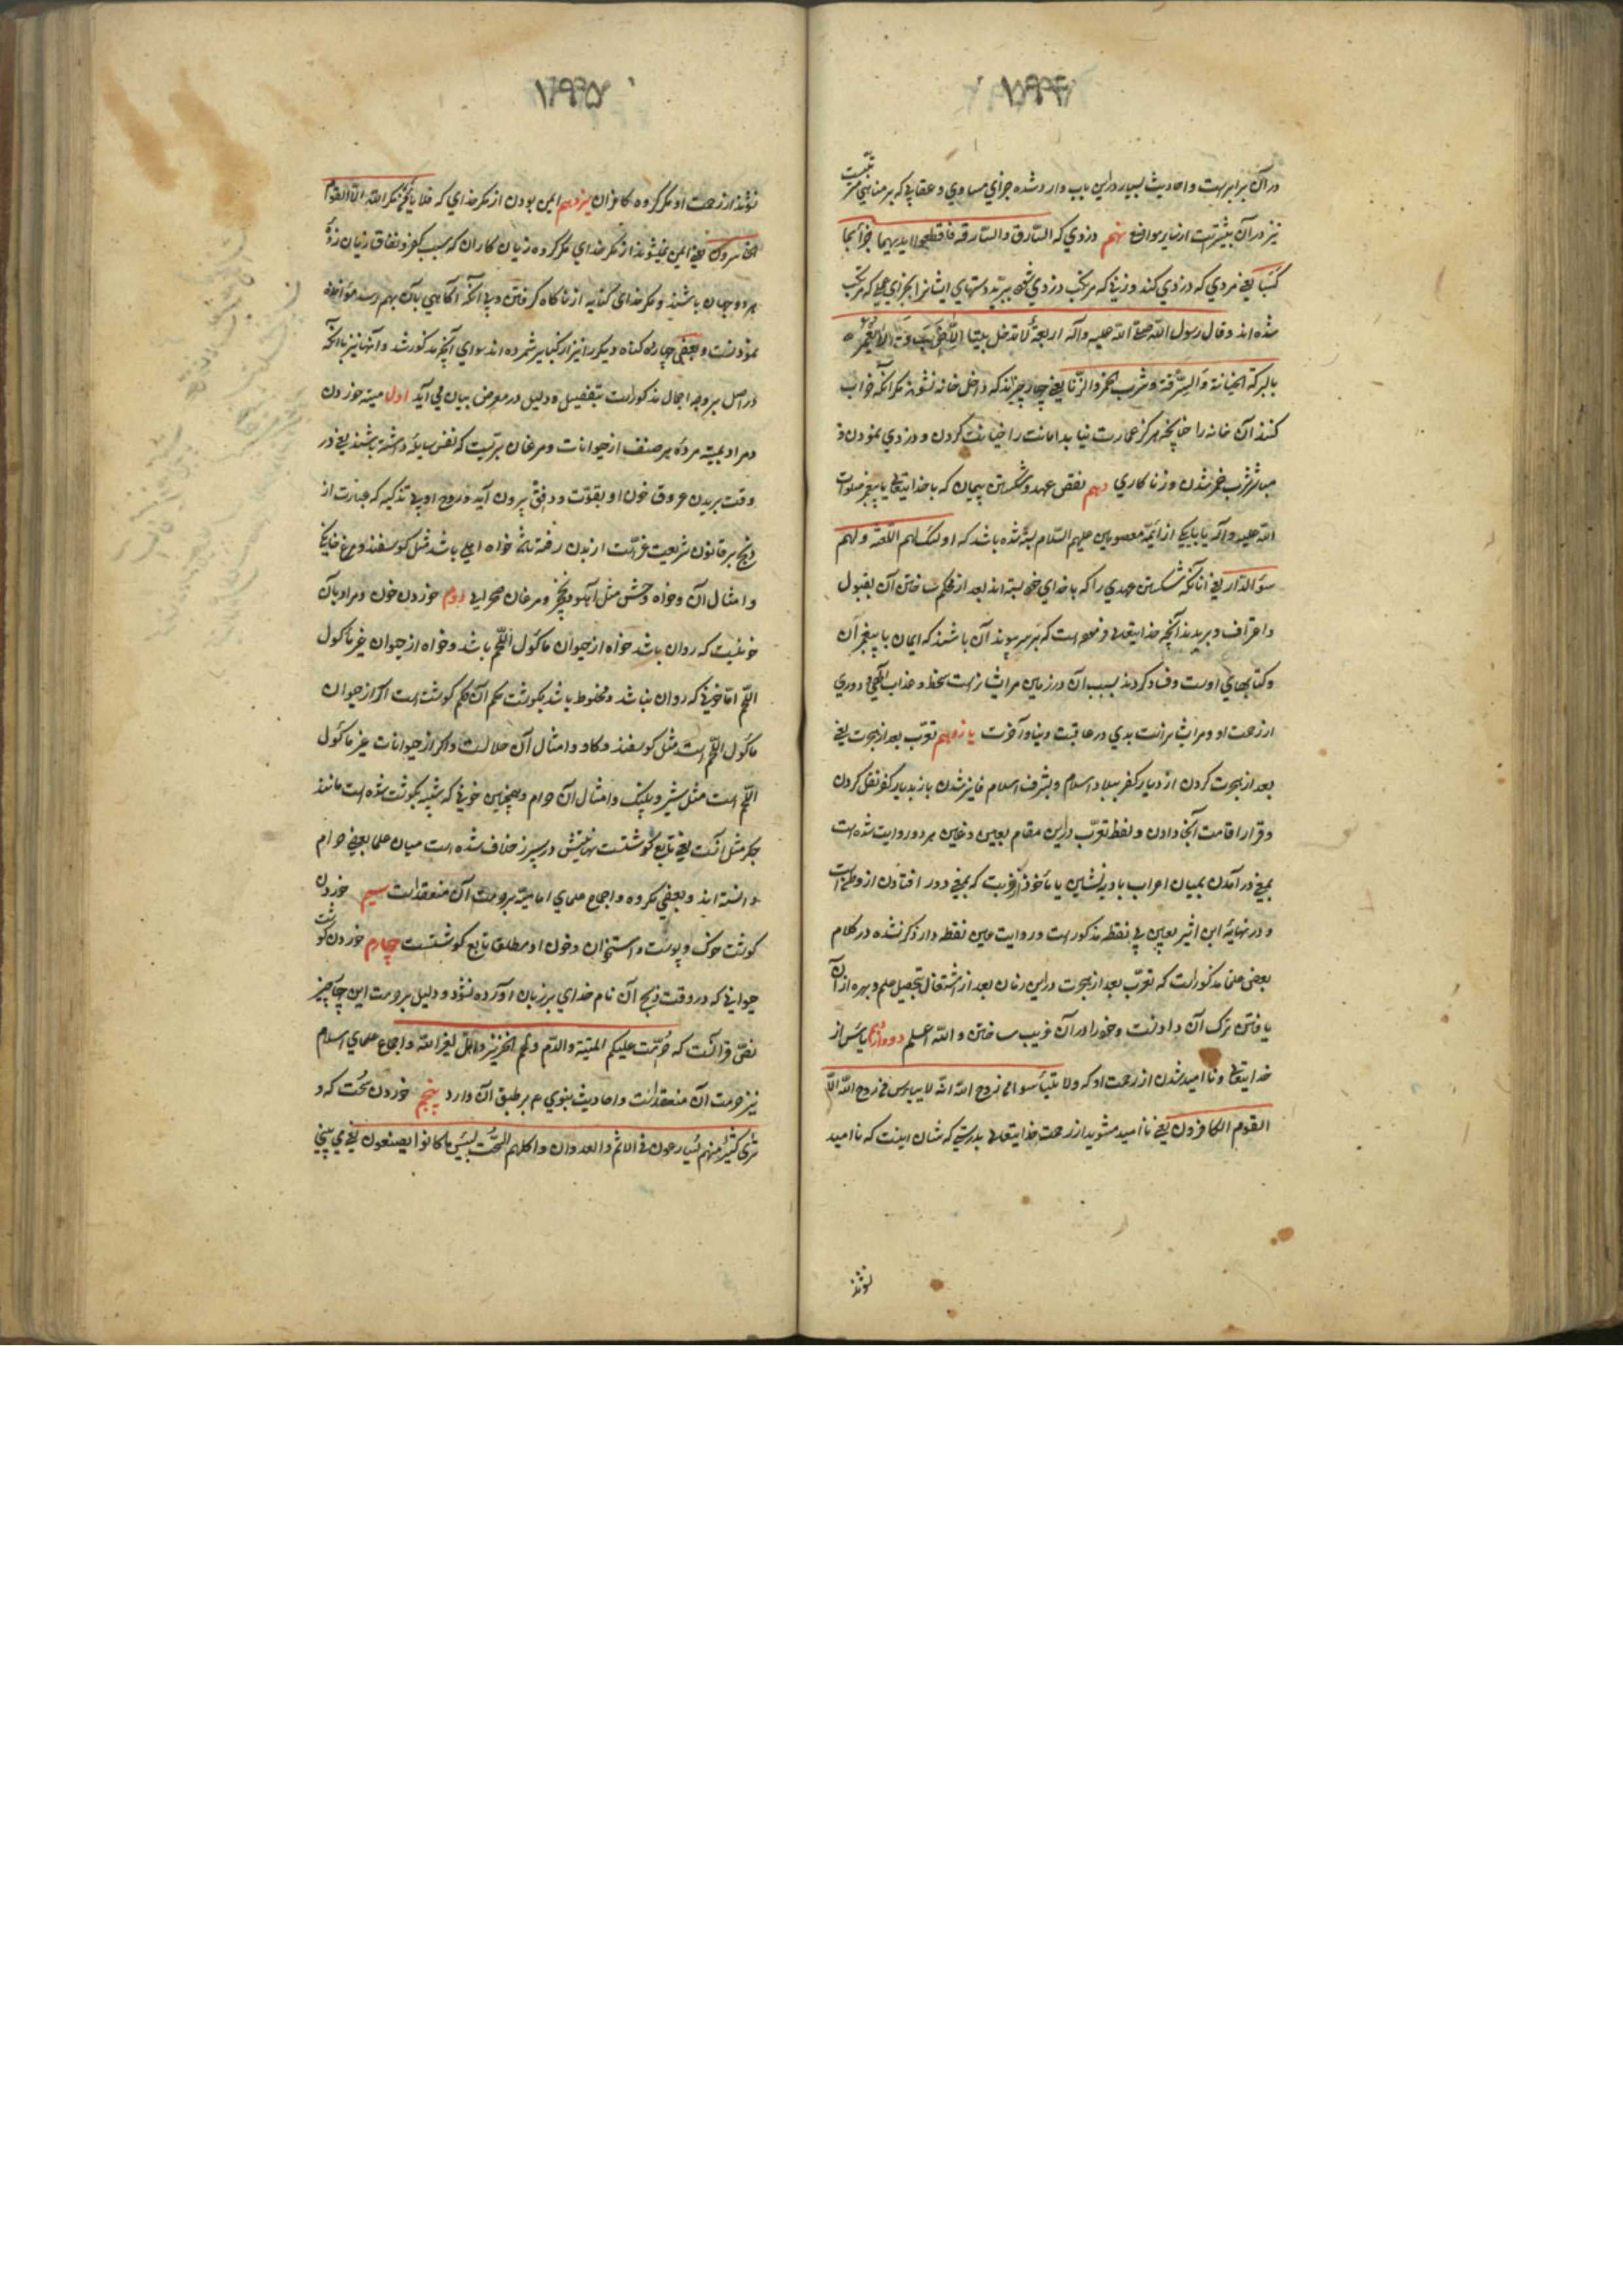 در آن برابرست و احادیث بسیار در این باب وارد شده جزای مساوی و عقابی که بر مناهی مرتبست
نیز در آن بیشترست از سایر مواضع نهم دزدی که السّارق والسّارقة فاقطعوا ایدیهما جزآء بما
کسبا یعنی مردی که دزدی کند و زنی که مرتکب دزدی شود ببرید دستهای ایشانرا بجزای عملی که مرتکب
شده اند و قال رسول اللّه صلی اللّه علیه وآله اربعة لا تدخل بیتا الّا خرب ولم یعمر
بالبرکة الخیانة والسّرقة وشرب الخمر والزّنا یعنی چهار چیزند که داخل خانه نشوند مگر آنکه خراب
کنند آن خانه را چنانچه هرگز عمارت نیابد امانت را خیانت کردن و دزدی نمودن و
مباشر شرب خمر شدن و زنا کاری دهم نقض عهد و شکستن پیمان که با خدایتعالی یا پیغمبر صلوات
اللّه علیه وآله یا با یکی از ائمّه معصومین علیهم السّلام بسته شده باشد که اولئک لهم اللّعنة ولهم
سوء الدّار یعنی آنانکه شکستن عهدی را که با خدای خود بسته اند بعد از محکم ساختن آن بقبول
و اعتراف و بریدند آنچه خدایتعالی فرموده است که بر سر پیوند آن باشند که ایمان با پیغمبر آن
و کتابهای اوست و فساد کردند بسبب آن در زمین مر ایشانراست سخط و عذاب الهی و دوری
از رحمت او و مر ایشانراست بدی در عاقبت دنیا و آخرت یازدهم تعرّب بعد از هجرت یعنی
بعد از هجرت کردن از دیار کفر ببلاد اسلام و بشرف اسلام فایز شدن باز بدیار کفر نقل کردن
و قرار اقامت آنجا دادن و لفظ تعرّب در این مقام بعین و غین هر دو روایت شده است
بمعنی در آمدن بمیان اعراب بادیه نشین یا مأخوذ از غربت که بمعنی دور افتادن از وطن است
و در نهایه ابن اثیر بعین بی نقطه مذکورست و روایت غین نقطه دار ذکر نشده در کلام
بعضی علما مذکور است که تعرّب بعد از هجرت در این زمان بعد از اشتغال بتحصیل علم و بهره از آن
یافتن ترک آن دادنست و خود را در آن غریب ساختن و اللّه اعلم دوازدهم یأس از
خدایتعالی و نا امید شدن از رحمت او که ولا تیأسوا من روح اللّه انّه لا ییأس من روح اللّه الّا
القوم الکافرون یعنی نا امید مشوید از رحمت خدایتعالی بدرستی که شان اینست که نا امید
نشوند
نشوند از رحمت او مگر گروه کافران سیزدهم ایمن بودن از مکر خدای که فلا یأمن مکر اللّه الّا القوم
الخاسرون یعنی ایمن نمیشوند از مکر خدای مگر گروه زیان کاران که بسبب کفر و نفاق زیان زده
هر دو جهان باشند و مکر خدای کنایه از ناگاه گرفتن و بی آنکه آگاهی بآن بهم رسد مؤاخذه
نمودنست و بعضی چهارده گناه دیگر را نیز از کبایر شمرده اند سوای آنچه مذکور شد و آنها نیز با آنکه
در اصل بر وجه اجمال مذکور است بتفصیل و دلیل در معرض بیان می آید اول میته خوردن
و مراد بمیته مرده هر صنف از حیوانات و مرغان بریست که نفس سایله داشته باشند یعنی در
وقت بریدن عروق خون او بقوّت و دفق بیرون آید و روح او بی تذکیه که عبارت از
ذبح بر قانون شریعت غرّاست از بدن رفته باشد خواه اهلی باشد مثل گوسفند و مرغ خانگی
و امثال آن و خواه وحشی مثل آهو و نخجیر و مرغان صحرایی دوم خوردن خون و مراد بآن
خونیست که روان باشد خواه از حیوان ماکول اللّحم باشد و خواه از حیوان غیر ماکول
اللّحم امّا خونی که روان نباشد و مخلوط باشد بگوشت حکم آن حکم گوشت است اگر از حیوان
ماکول اللّحم است مثل گوسفند و گاو و امثال آن حلالست و اگر از حیوانات غیر ماکول
اللّحم است مثل شیر و پلنگ و امثال آن حرام و همچنین خونی که شبیه بگوشت شده است مانند
جگر مثل آنست یعنی تابع گوشتست نهایتش در سپرز خلاف شده است میان علما بعضی حرام
دانسته اند و بعضی مکروه و اجماع علمای امامیّه بر حرمت آن منعقد است سیم خوردن
گوشت خوک و پوست و استخوان و خون او مطلقا تابع گوشتست چهارم خوردن گوشت
حیوانی که در وقت ذبح آن نام خدای بر زبان آورده نشود و دلیل بر حرمت این چهار چیز
نصّ قرآنست که حرّمت علیکم المیتة والدّم ولحم الخنزیر وما اهلّ لغیر اللّه و اجماع علمای اسلام
نیز حرمت آن منعقد است و احادیث نبوی م بر طبق آن وارد پنجم خوردن سحت که و
تری کثیراً منهم یسارعون فی الاثم والعدوان واکلهم السّحت لبئس ما کانوا یصنعون یعنی می بینی